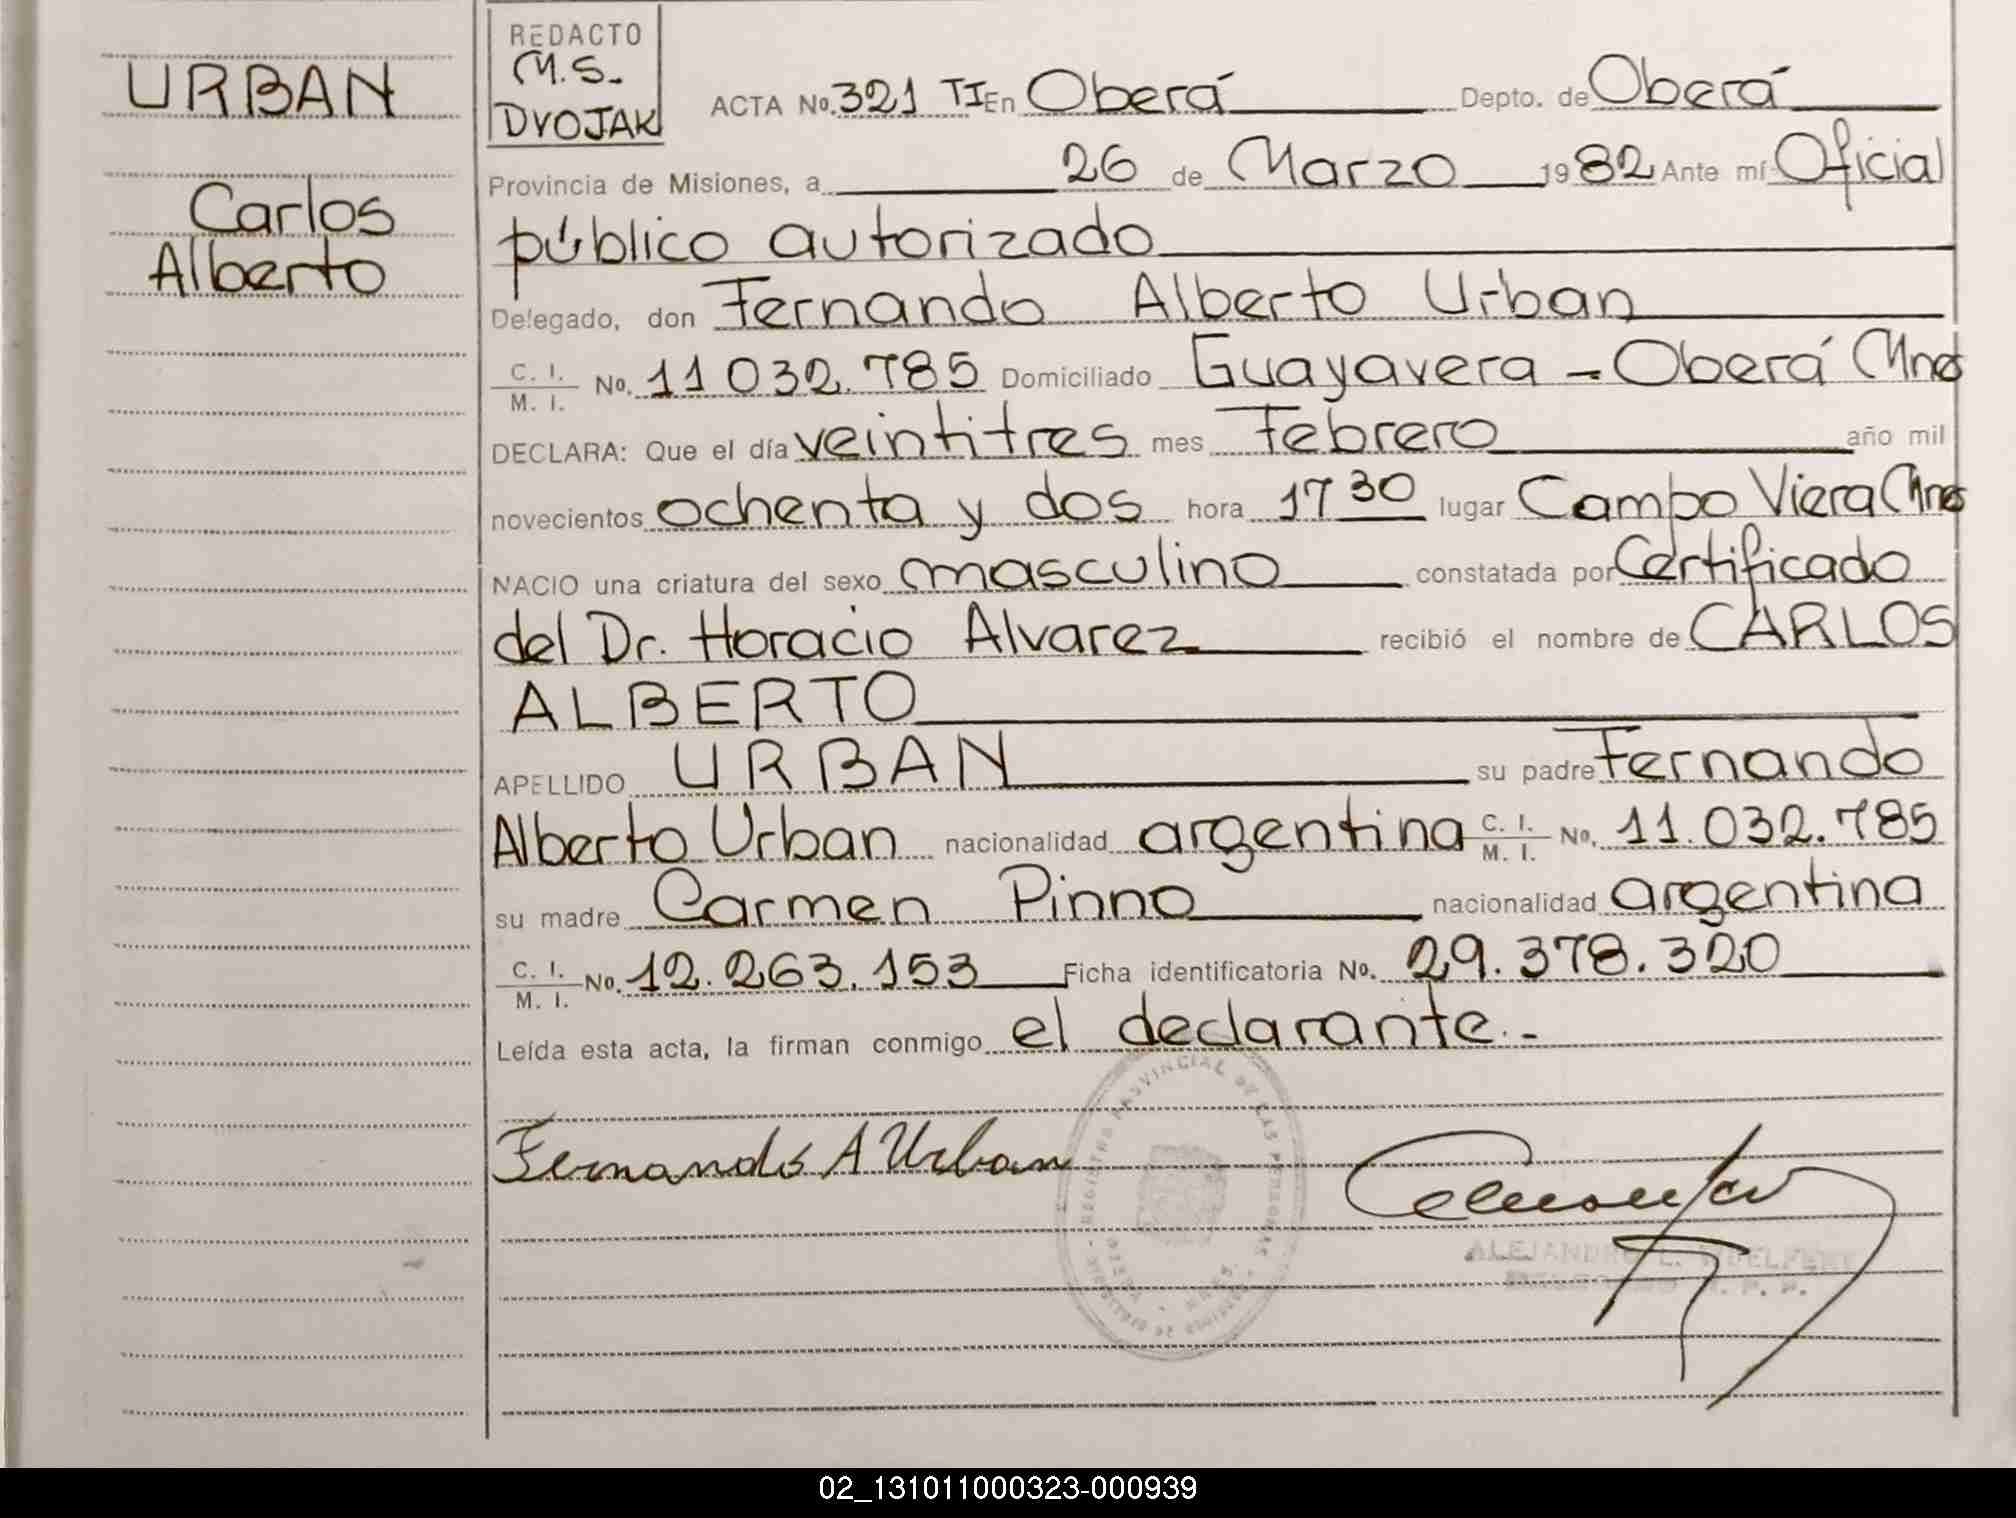 URBAN
Carlos
Alberto
REDACTO
M.S.
DVOJAK
ACTA No. 321 TI En Oberá Depto. de Oberá
Provincia de Misiones, a 26 de Marzo 1982 Ante mí Oficial
público autorizado
Delegado, don Fernando Alberto Urban
C. I. / M. I. No. 11 032.785 Domiciliado Guayavera - Oberá Mnes
DECLARA: Que el día veintitres mes Febrero año mil
novecientos ochenta y dos hora 17 30 lugar Campo Viera Mnes
NACIO una criatura del sexo masculino constatada por Certificado
del Dr. Horacio Alvarez recibió el nombre de CARLOS
ALBERTO
APELLIDO URBAN su padre Fernando
Alberto Urban nacionalidad argentina C. I. / M. I. No. 11.032.785
su madre Carmen Pinno nacionalidad argentina
C. I. / M. I. No. 12.263.153 Ficha identificatoria No. 29.378.320
Leída esta acta, la firman conmigo el declarante.-
Fernando A Urban
REGISTRO PROVINCIAL DE LAS PERSONAS
ALEJANDRO L.
02_131011000323-000939